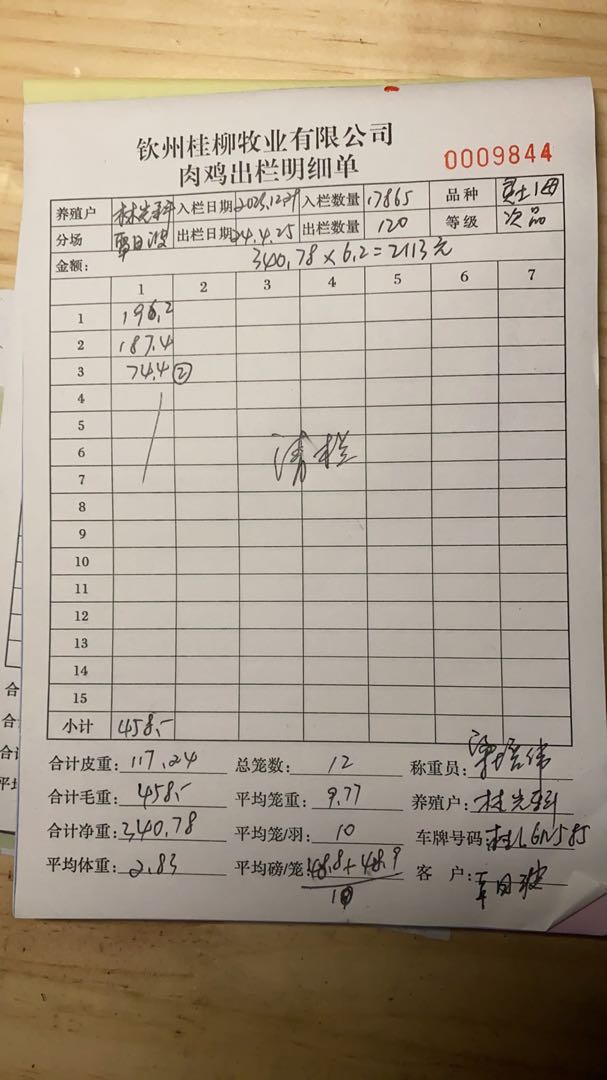 钦州桂柳牧业有限公司
肉鸡出栏明细单 0009844
养殖户 林先科 入栏日期 2023.12.29 入栏数量 17865 品种
分场 出栏日期 24.4.25 出栏数量 120 等级 次品
金额: 340.78 × 6.2 = 2113元
1 2 3 4 5 6 7
1 196.2
2 187.4
3 74.4 ②
4
5
6 清栏
7
8
9
10
11
12
13
14
15
小计 458.-
合计皮重: 117.24 总笼数: 12 称重员:
合计毛重: 458.- 平均笼重: 9.77 养殖户: 林先科
合计净重: 340.78 平均笼/羽: 10 车牌号码:
平均体重: 2.83 平均磅/笼: 48.8+48.9 客 户:
10
合
合
合
平